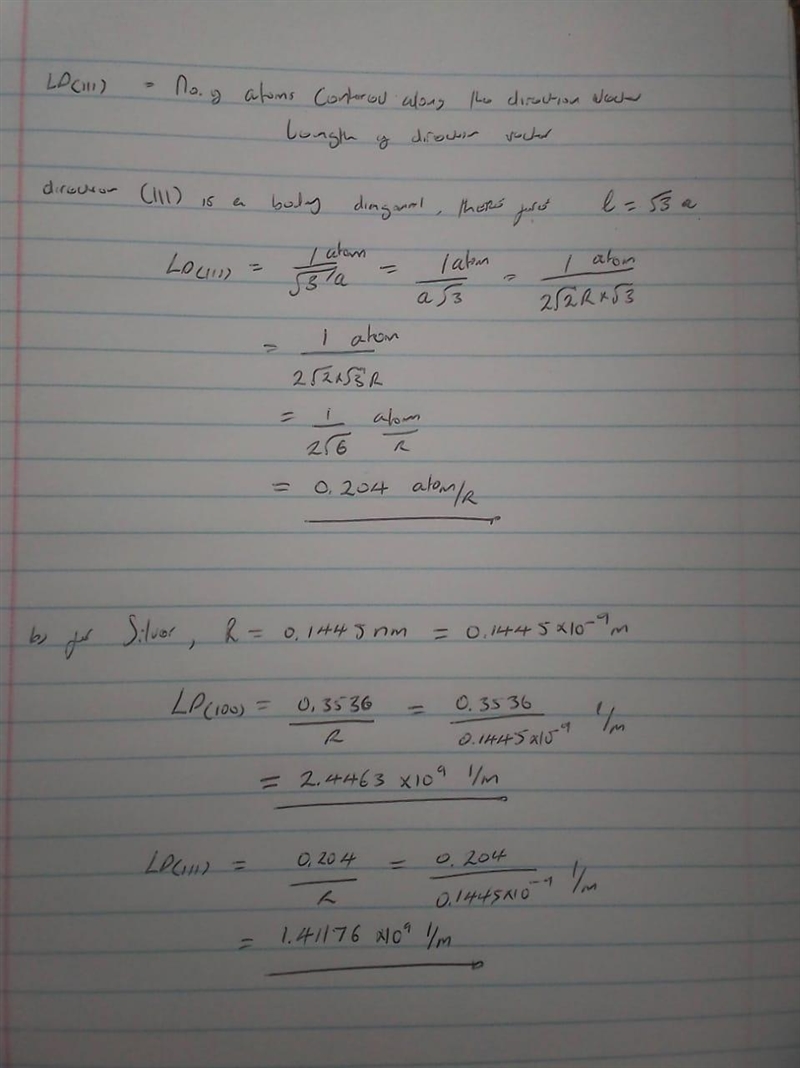 LD(111) = No. of atoms Centered along the direction vector
Length of direction vector
direction (111) is a body diagonal, l = √3 a
LD(111) = 1 atom / √3 a = 1 atom / a√3 = 1 atom / 2√2R×√3
= 1 atom / 2√2×√3R
= 1 / 2√6 atom / R
= 0.204 atom/R
b) for Silver, R = 0.1445nm = 0.1445×10⁻⁹m
LD(100) = 0.3536 / R = 0.3536 / 0.1445×10⁻⁹ 1/m
= 2.4463 ×10⁹ 1/m
LD(111) = 0.204 / R = 0.204 / 0.1445×10⁻⁹ 1/m
= 1.41176 ×10⁹ 1/m